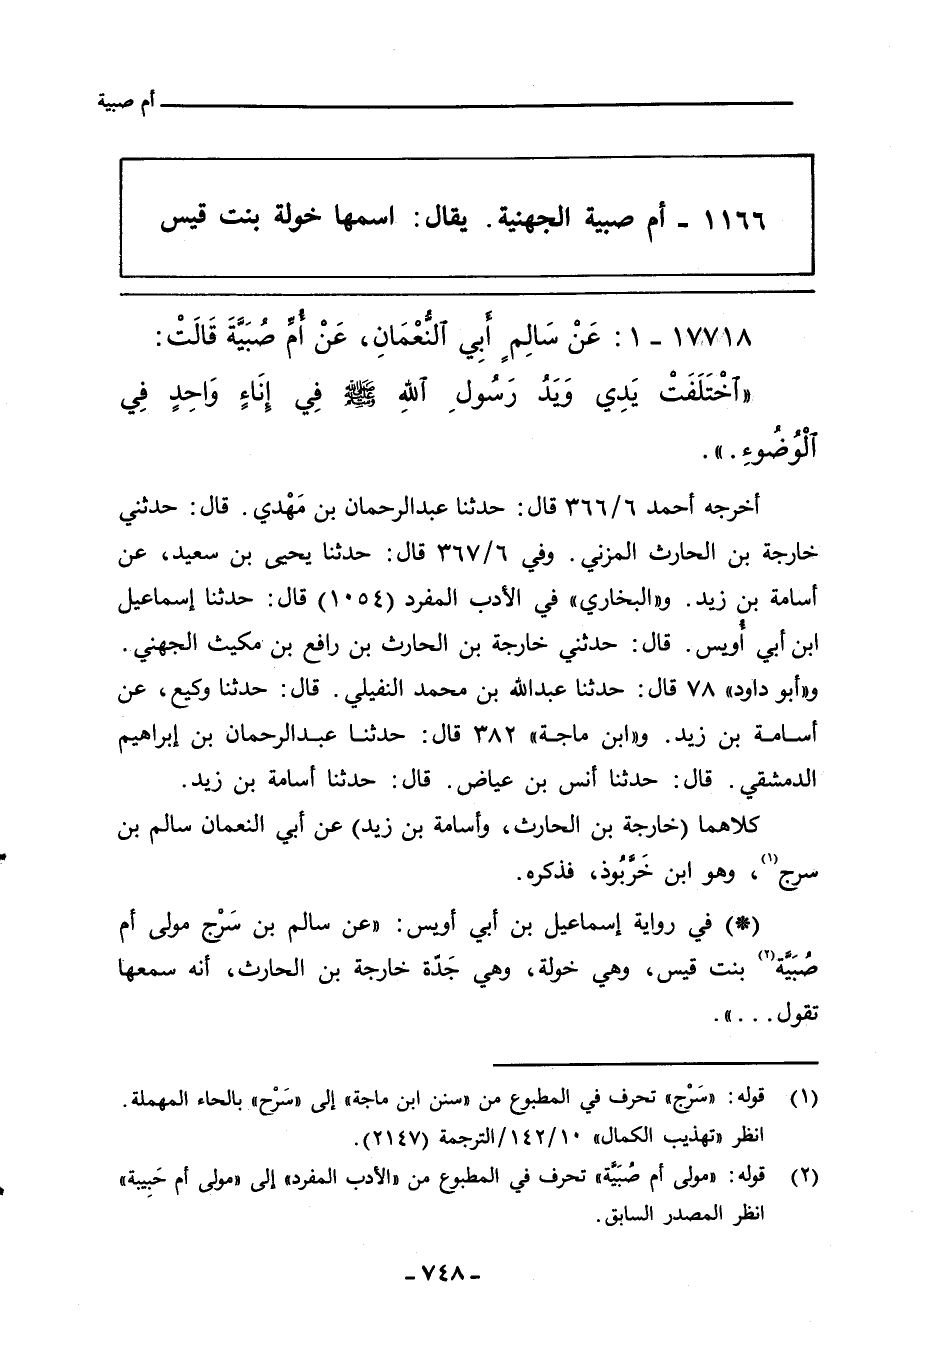 أم صبية
١١٦٦ - أم صبية الجهنية. يقال: اسمها خولة بنت قيس
١٧٧١٨ - ١ : عَنْ سَالِمٍ أَبِي ٱلنُّعْمَانِ، عَنْ أُمِّ صُبَيَّةَ قَالَتْ:
«ٱخْتَلَفَتْ يَدِي وَيَدُ رَسُولِ ٱللهِ ﷺ فِي إِنَاءٍ وَاحِدٍ فِي
ٱلْوُضُوءِ.».
أخرجه أحمد ٣٦٦/٦ قال: حدثنا عبدالرحمان بن مَهْدي. قال: حدثني
خارجة بن الحارث المزني. وفي ٣٦٧/٦ قال: حدثنا يحيى بن سعيد، عن
أسامة بن زيد. و«البخاري» في الأدب المفرد (١٠٥٤) قال: حدثنا إسماعيل
ابن أبي أُويس. قال: حدثني خارجة بن الحارث بن رافع بن مكيث الجهني.
و«أبو داود» ٧٨ قال: حدثنا عبدالله بن محمد النفيلي. قال: حدثنا وكيع، عن
أسامة بن زيد. و«ابن ماجة» ٣٨٢ قال: حدثنا عبدالرحمان بن إبراهيم
الدمشقي. قال: حدثنا أنس بن عياض. قال: حدثنا أسامة بن زيد.
كلاهما (خارجة بن الحارث، وأسامة بن زيد) عن أبي النعمان سالم بن
سرج(١)، وهو ابن خَرَّبُوذ، فذكره.
(*) في رواية إسماعيل بن أبي أويس: «عن سالم بن سَرْج مولى أم
صُبَيَّة(٢) بنت قيس، وهي خولة، وهي جَدّة خارجة بن الحارث، أنه سمعها
تقول...».
(١) قوله: «سَرْج» تحرف في المطبوع من «سنن ابن ماجة» إلى «سَرْح» بالحاء المهملة.
انظر «تهذيب الكمال» ١٤٢/١٠/الترجمة (٢١٤٧).
(٢) قوله: «مولى أم صُبَيَّة» تحرف في المطبوع من «الأدب المفرد» إلى «مولى أم حَبِيبة»
انظر المصدر السابق.
- ٧٤٨ -